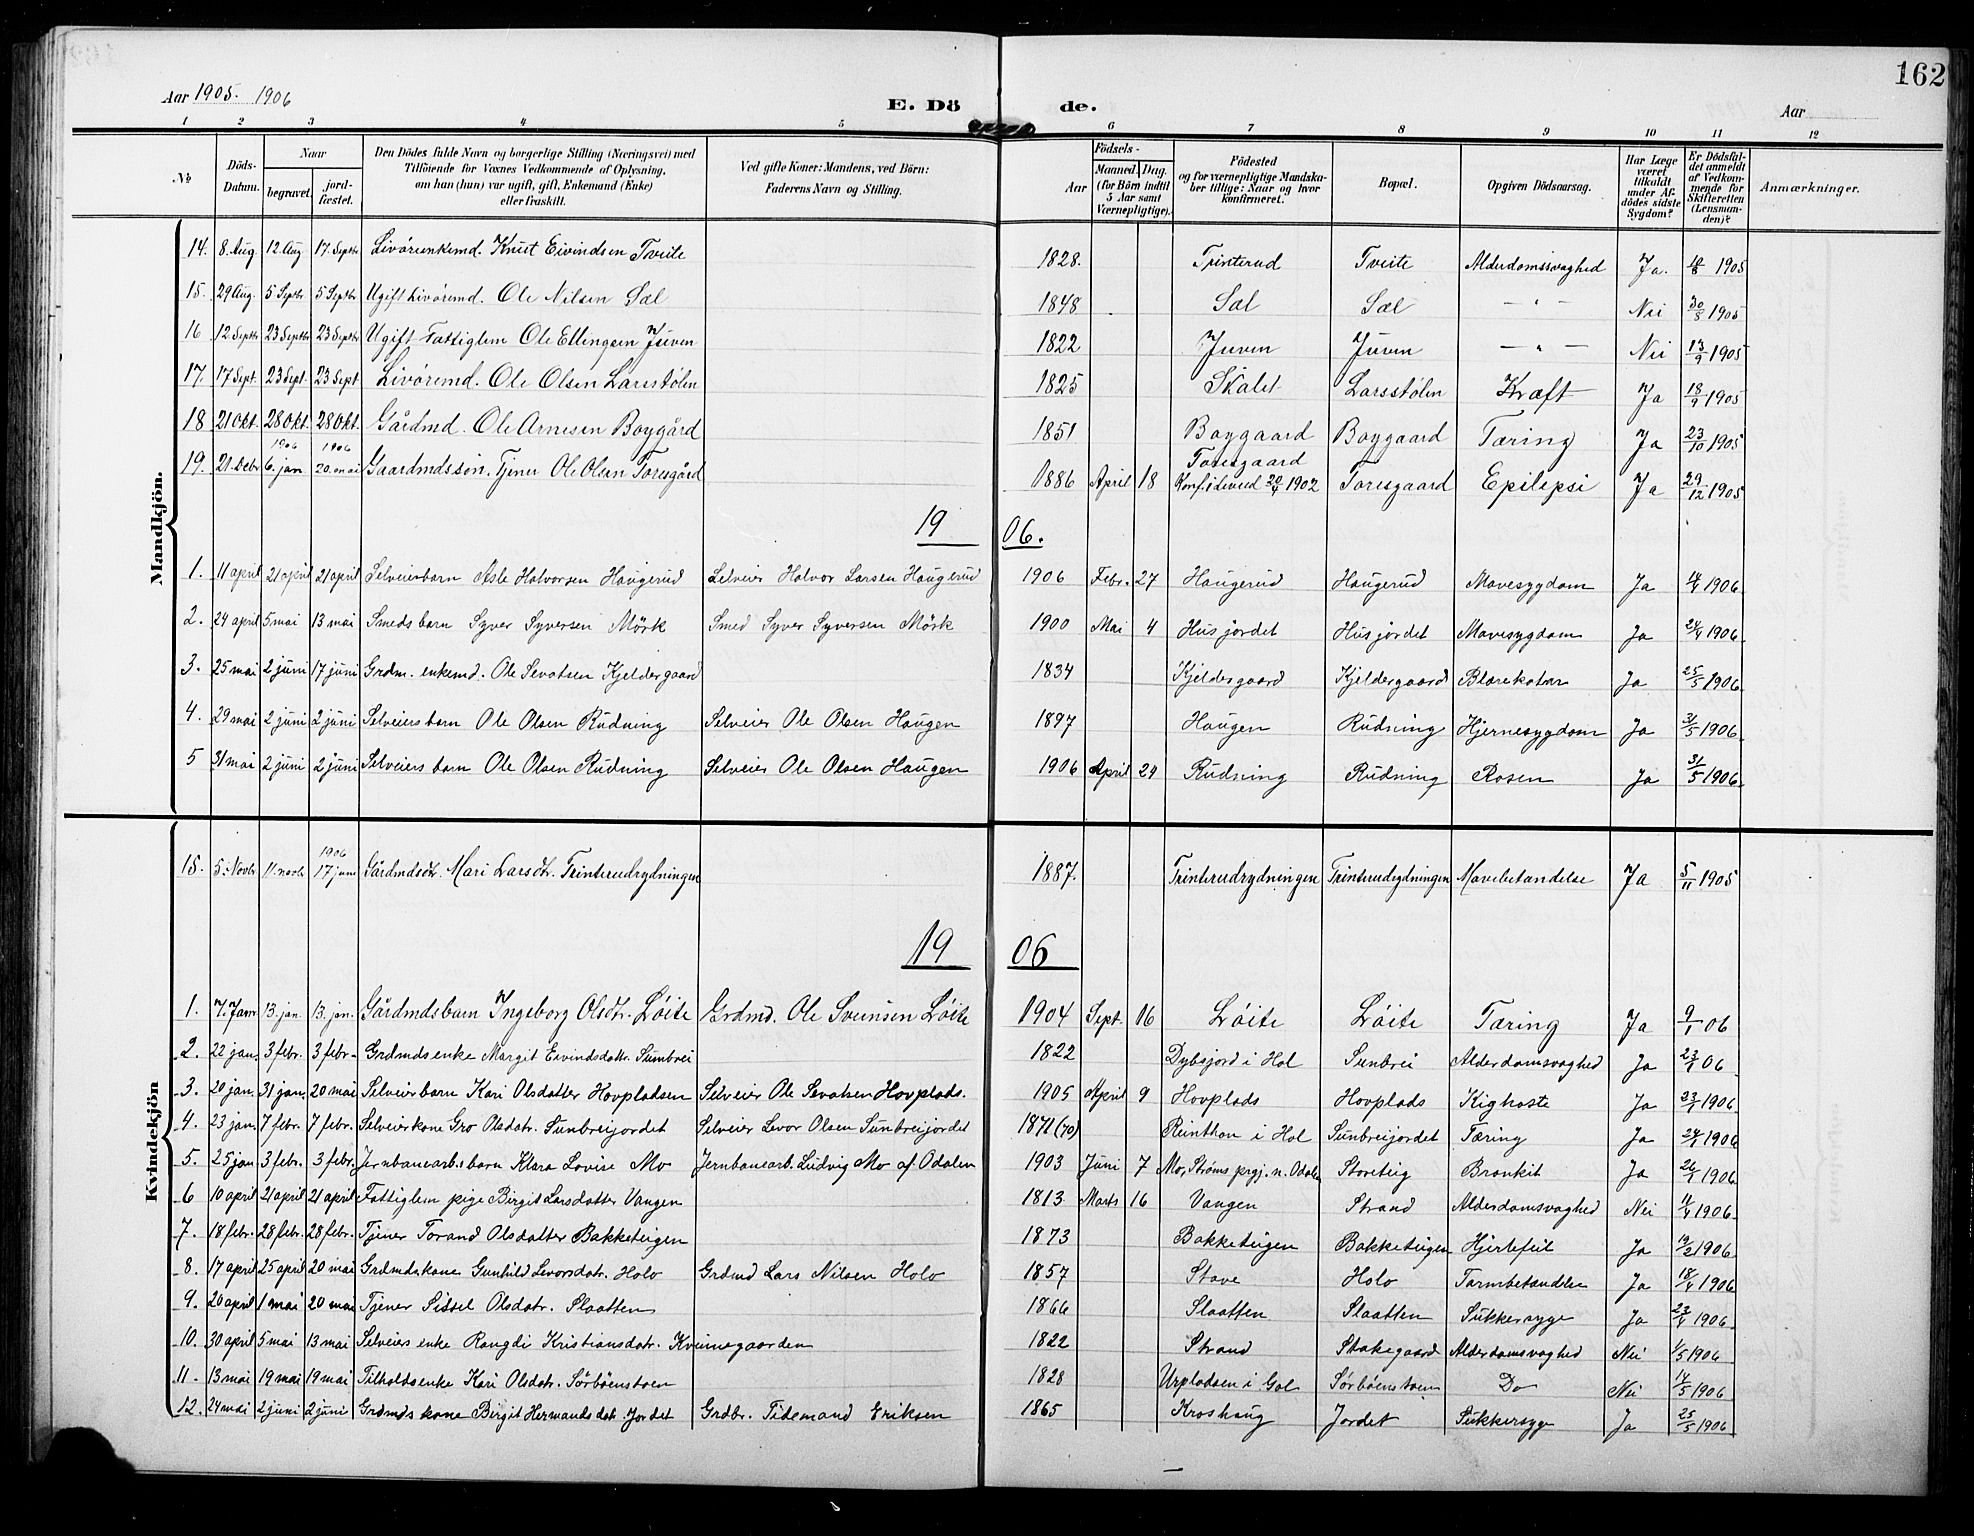 162
Aar 1905. 1906
E. Dö de.
Aar
1 2 3 4 5 6 7 8 9 10 11 12
No Döds-Datum. Naar begravet. jord-fæstet. Den Dödes fulde Navn og borgerlige Stilling (Næringsvei) med Tilföiende for Voxnes Vedkommende af Oplysning, om han (hun) var ugift, gift, Enkemand (Enke) eller fraskilt. Ved gifte Koner: Mandens, ved Börn: Faderens Navn og Stilling. Födsels- Aar Maaned. Dag. (for Börn indtil 5 Aar samt Værnepligtige). Födested og for værnepligtige Mandskaber tillige: Naar og hvor konfirmeret. Bopæl. Opgiven Dödsaarsag. Har Læge været tilkaldt under Afdödes sidste Sygdom? Er Dödsfaldet anmeldt af Vedkommende for Skifteretten (Lensmanden)? Anmærkninger.
Mandkjön.
14. 8. Aug. 12 Aug 17. Septbr Livörenkemd. Knut Eivindsen Tveite 1828. Trinterud Tveite Alderdomssvaghed Ja. 10/8 1905
15. 29 Aug. 5 Septbr 5 Septbr Ugift Livöremd. Ole Nilsen Sæl 1848 Sæl Sæl — " — Nei 30/8 1905
16 12 Septbr 23 Septbr 23 Septbr Ugift Fattiglem Ole Ellingsen Juven 1822 Juven Juven — " — Nei 13/9 1905
17. 17 Sept. 23 Sept. 23 Sept Livöremd. Ole Olsen Larsstölen 1825 Skalet Larsstölen Kræft Ja 18/9 1905
18 21 Okt. 28 Okt. 28 Okt. Gårdmd. Ole Arnesen Boygård 1851 Boygaard Boygaard Tæring Ja 23/10 1905
1906 1906
19. 21. Debr 6. jan 20. mai Gaardmdssön. Tjener Ole Olsen Toresgård 1886 April 18 Toresgaard Konf. i Leveld 20/4 1902 Toresgaard Epilepsi Ja 29/12 1905
19 06.
1. 11 april 21 april 21 april Selveierbarn Asle Halvorsen Haugerud Selveier Halvor Larsen Haugerud 1906 Febr. 27 Haugerud Haugerud Mavesygdom Ja 14/4 1906
2. 24 april 5 mai 13 mai Smeds barn Syver Syversen Mörk Smed Syver Syversen Mörk 1900 Mai 4 Husjordet Husjordet Mavesygdom Ja 24/4 1906
3. 25 mai 2 juni 17 juni Grdm. enkemd. Ole Sevatsen Kjeldergaard 1834 Kjeldergaard Kjeldergaard Blærekatar Ja 25/5 1906
4. 29 mai 2 juni 2 juni Selveiersbarn Ole Olsen Rudning Selveier Ole Olsen Haugen 1897 Haugen Rudning Hjernesygdom Ja 31/5 1906
5 31 mai 2 juni 2 juni Selveiers barn Ole Olsen Rudning Selveier Ole Olsen Haugen 1906 April 24 Rudning Rudning Rosen Ja 31/5 1906
Kvindekjön
1906
15. 5. Novbr 11. novbr 17 juni Gårdmdsdtr. Mari Larsdtr. Trinterudrydningen 1887. Trinterudrydningen Trinterudrydningen Mavebetændelse Ja 5/11 1905
19 06
1. 7. Janr 13. jan. 13. jan. Gårdmdsbarn Ingeborg Olsdtr. Löite Grdmd. Ole Sveinsen Löite 1904 Sept. 16 Löite Löite Tæring Ja 9/1 06
2. 22 jan. 3 febr. 3 febr. Grdmdsenke Margit Eivindsdatr. Sunbrei 1822 Dybsjord i Hol Sunbrei Alderdomsvaghed Ja 23/1 06
3. 20 jan. 31 jan. 20 mai Selveierbarn Kari Olsdatter Hovpladsen Selveier Ole Sevatsen Hovplads. 1905 April 9 Hovplads Hovplads Kighoste Ja 23/1 1906
4. 23 jan. 7 febr. 7 febr. Selveierkone Gro Olsdatr. Sunbreijordet Selveier Levor Olsen Sunbreijordet 1871 (70) Reinthon i Hol Sunbreijordet Tæring Ja 24/1 1906
5. 25 jan 3 febr. 3 febr. Jernbanearb.sbarn Klara Lovise Mo Jernbanearb. Ludvig Mo af Odalen 1903 Juni 7 Mo, Ströms prgj. n. Odalen Storeteig Bronkit Ja 26/1 1906
6 10 april 21 april 21 april Fattiglem pige Birgit Larsdatter Vangen 1813 Marts 16 Vangen Strand Alderdomsvaghed Nei 11/4 1906
7. 18 febr. 28 febr. 28 febr. Tjener Torand Olsdatter Bakketeigen 1873 Bakketeigen Bakketeigen Hjertefeil Ja 19/2 1906
8. 17 april 25 april 20 mai Grdmdskone Gunhild Levorsdatr. Holo Grdmd Lars Nilsen Holo 1857 Stave Holo Tarmbetændelse Ja 18/4 1906
9. 20 april 1 mai 20 mai Tjener Sissel Olsdatr. Slaatten 1866 Slaatten Slaatten Sukkersyge Ja 23/4 1906
10. 30 april 5 mai 13 mai Selveiers enke Rangdi Kristiansdatr. Kvinnegaarden 1822 Strand Stakegaard Alderdomsvaghed Nei 1/5 1906
11. 13 mai 19 mai 19 mai Tilholdsenke Kari Olsdatr. Sörböenstoen 1828 Urpladsen i Gol Sörböenstoen Do Nei 14/5 1906
12. 24 mai 2 juni 2 juni Grdmds kone Birgit Hermansdatr. Jordet Grdbr. Tidemand Eriksen 1865 Kroshaug Jordet Sukkersyge Ja 25/5 1906